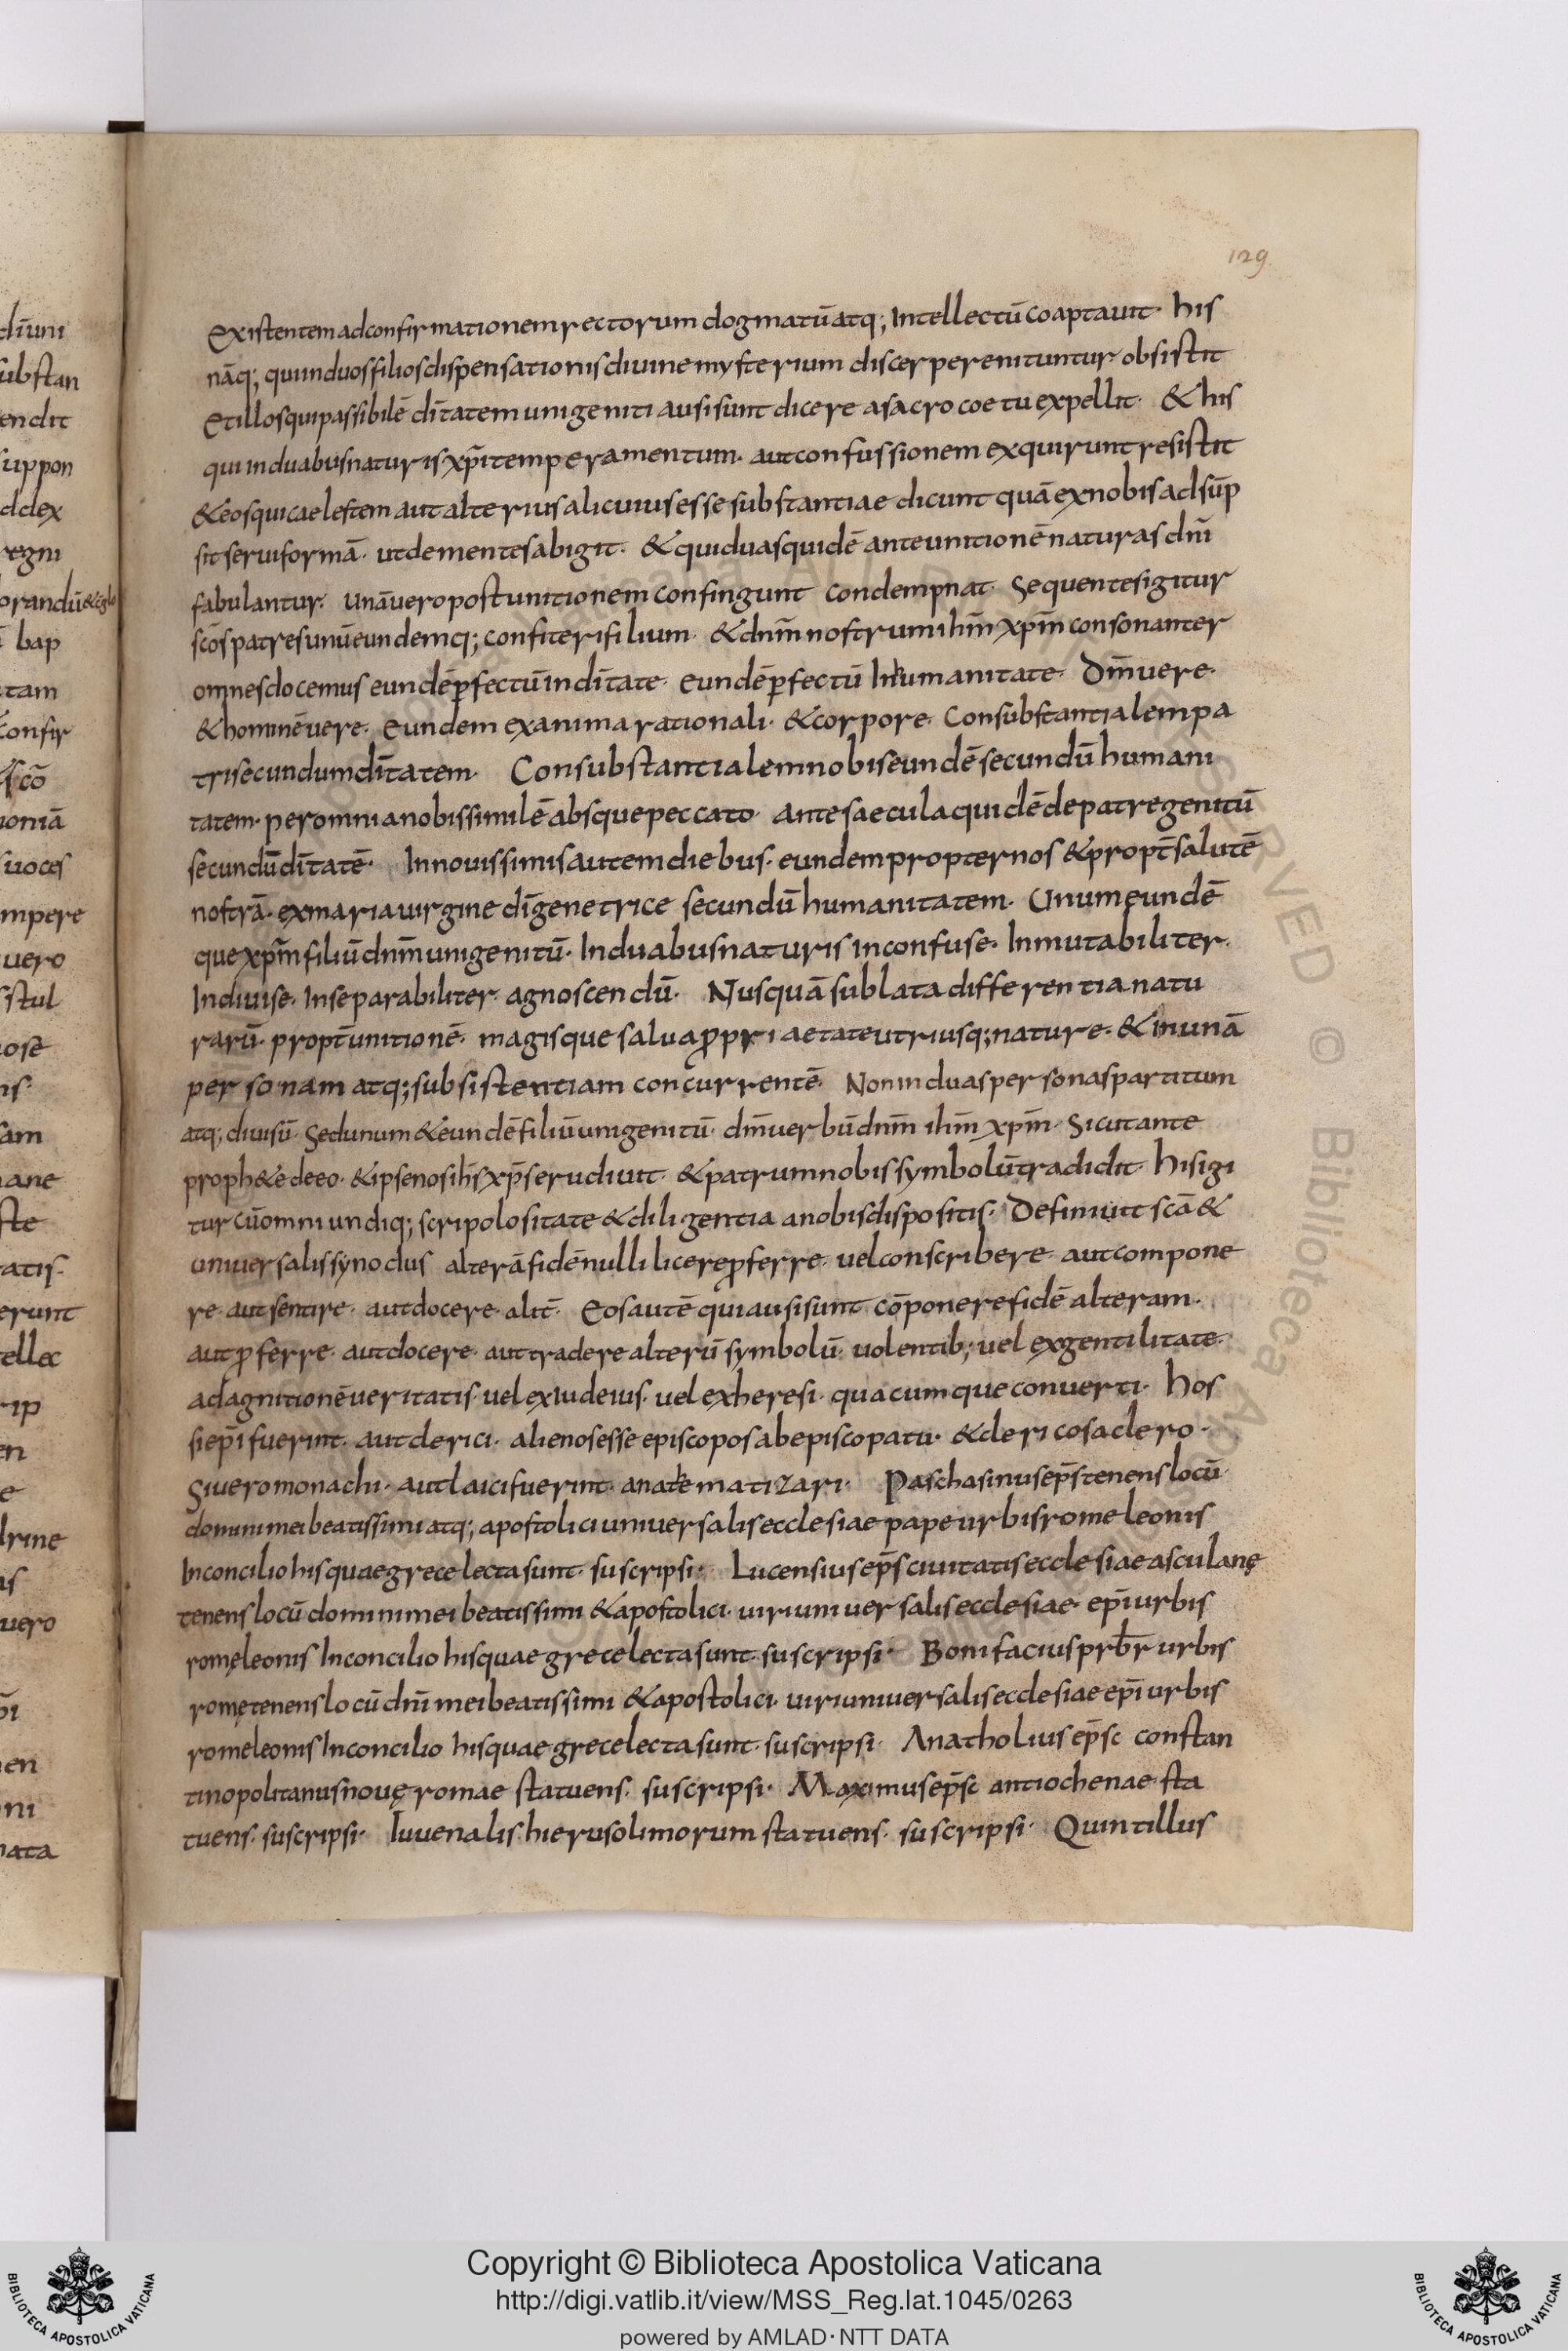 129
existentem ad confirmationem rectorum dogmatū atq; Intellectū coaptauit· his
nāq; qui in duos filios dispensationis diuine mysterium discerpere nituntur obsistit
Et illos qui passibilē dītatem unigeniti ausi sunt dicere a sacro coetu expellit· & his
qui in duabus naturis xp̄i temperamentum· aut confussionem exquirunt resistit
& eos qui caelestem aut alterius alicuius esse substantiae dicunt quā ex nobis adsūp
sit serui formā· ut dementes abigit· & qui duas quidē ante unitionē naturas dn̄i
fabulantur· unā uero post unitionem confingunt condempnat· Sequentes igitur
sc̄os patres unū eundemq; confiteri filium· & dn̄m nostrum ih̄m xp̄m consonanter
omnes docemus eundē ꝑfectū in dītate· eundē ꝑfectū In humanitate· Dm̄ uere·
& hominē uere· eundem ex anima rationali· & corpore· Consubstantialem pa
tri secundum dītatem· Consubstantialem nobis eundē secundū humani
tatem· per omnia nobis similē absque peccato· ante saecula quidē de patre genitū
secundū dītatē· In nouissimis autem diebus· eundem propter nos & propt̄ salutē
nostrā· ex maria uirgine dī genetrice secundū humanitatem· Unum eundē
que xp̄m filiū dn̄m unigenitū· In duabus naturis inconfuse· Inmutabiliter·
Indiuise· Inseparabiliter· agnoscendū· Nusquā sublata differentia natu
rarū· propt̄ unitionē· magisque salua ꝓpriaetate utriusq; nature· & in unā
personam atq; subsistentiam concurrentē· Non in duas personas partitum
atq; diuisū· Sed unum & eundē filiū unigenitū· dm̄ uerbū dn̄m ih̄m xp̄m· Sicut ante
proph&e de eo· & ipse nos ih̄s xp̄s erudiuit· & patrum nobis symbolū tradidit· his igi
tur cū omni undiq; scripolositate & diligentia a nobis dispositis· Definiuit sc̄a &
uniuersalis synodus alterā fidē nulli licere ꝓferre· uel conscribere· aut compone
re· aut sentire· aut docere· alit̄· Eos autē qui ausi sunt cōponere fidē alteram·
aut ꝓferre· aut docere· aut tradere alterū symbolū· uolentib; uel ex gentilitate·
ad agnitionē ueritatis· uel ex iudeius· uel ex heresi· quacumque conuerti· hos
si ep̄i fuerint· aut clerici· alienos esse episcopos ab episcopatu· & clericos a clero·
Si uero monachi· aut laici fuerint· anathematizari· Paschasinus ep̄s tenens locū
domini mei beatissimi atq; apostolici uniuersalis ecclesiae pape urbis rome leonis
In concilio his quae grece lecta sunt· suscripsi· Lucensius ep̄s ciuitatis ecclesiae asculanę
tenens locū domini mei beatissimi & apostolici· uiri uniuersalis ecclesiae· ep̄i urbis
romę leonis In concilio his quae grece lecta sunt· suscripsi· Bonifacius prb̄r urbis
romę tenens locū dn̄i mei beatissimi & apostolici· uiri uniuersalis ecclesiae ep̄i urbis
rome leonis In concilio his quae grece lecta sunt· suscripsi· Anatholius ep̄sc constan
tinopolitanus nouę romae statuens· suscripsi· Maximus ep̄sc antiochenae sta
tuens· suscripsi· Iuuenalis hierusolimorum statuens· suscripsi· Quintillus
Copyright © Biblioteca Apostolica Vaticana
http://digi.vatlib.it/view/MSS_Reg.lat.1045/0263
powered by AMLAD·NTT DATA
BIBLIOTECA APOSTOLICA VATICANA
BIBLIOTECA APOSTOLICA VATICANA